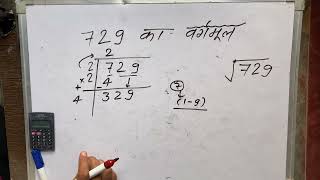 729 का वर्गमूल
2
2 729
×2 4↓
+ 4 329
7
(1-9)
√729